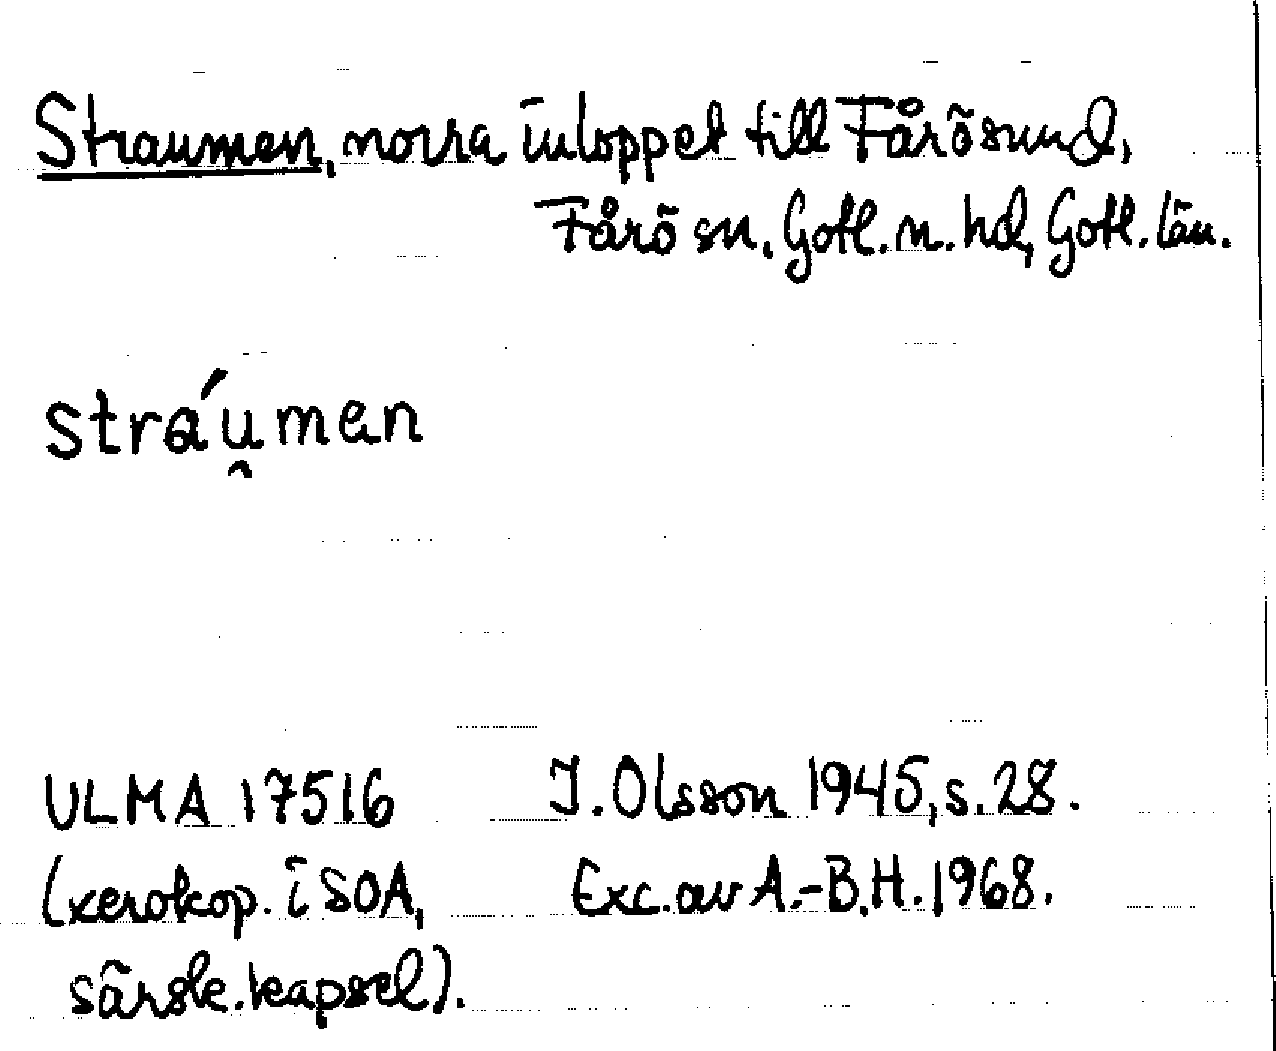 Straumen, norra inloppet till Fårösund,
Fårö sn, Gotl. n. hd, Gotl. län.
strá́u̯men
ULMA 17516 I. Olsson 1945, s. 28.
(xerokop. i SOA, Exc. av A.-B.H. 1968.
särsk. kapsel).